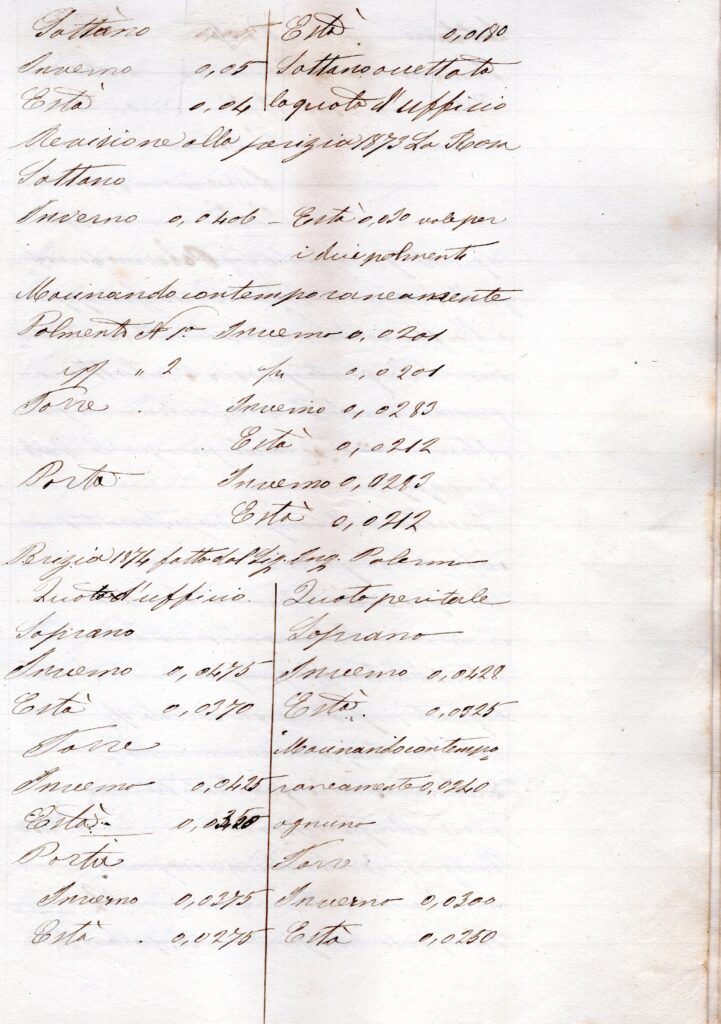 Sottano
Inverno 0,05
Està 0,04
Està 0,0180
Sottano accettata
la quota d'ufficio
Revisione alla perizia 1873 La Rosa
Sottano
Inverno 0,0406 – Està 0,030 vale per
i due polmenti
Macinando contemporaneamente
Polmenti N 1º Inverno 0,0201
" 2 0,0201
Torre . Inverno 0,0283
Està 0,0212
Porta Inverno 0,0283
Està 0,0212
Perizia 1874 fatta dal Sig. Ing. Palermo
Quota d'ufficio
Soprano
Inverno 0,0475
Està 0,0370
Torre
Inverno 0,0425
Està
Porta
Inverno 0,0375
Està . 0,0275
Quota peritale
Soprano
Inverno 0,0428
Està . 0,0325
Macinando contempo
raneamente 0,0240
ognuno
Torre
Inverno 0,0300
Està 0,0250